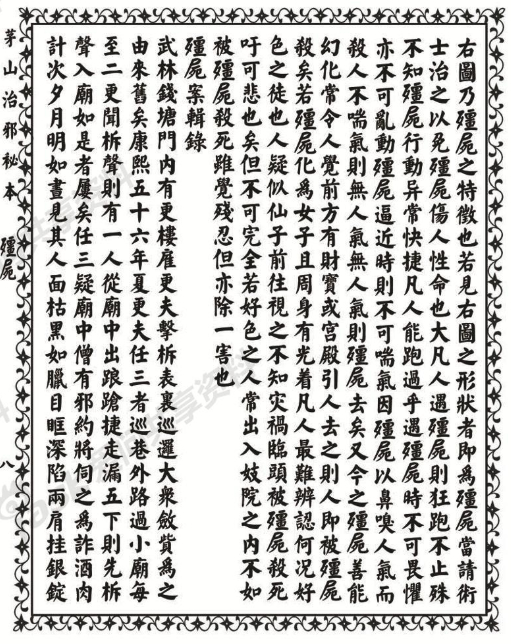 右圖乃殭屍之特徵也若見右圖之形狀者即為殭屍當請術
士治之以免殭屍傷人性命也大凡人遇殭屍則狂跑不止殊
不知殭屍行動异常快捷凡人能跑過乎遇殭屍時不可畏懼
亦不可亂動殭屍逼近時則不可喘氣因殭屍以鼻嗅人氣而
殺人不喘氣則無人氣無人氣則殭屍去矣又今之殭屍善能
幻化常令人覺前方有財寶或宮殿引人去之則人即被殭屍
殺矣若殭屍化為女子且周身有光着凡人最難辨認何況好
色之徒也人疑似仙子前往視之不知灾禍臨頭被殭屍殺死
吁可悲也矣但不可完全若好色之人常出入妓院之内不如
被殭屍殺死雖覺殘忍但亦除一害也
殭屍案輯錄
武林錢塘門内有更樓雇更夫擊柝表裏巡邏大衆斂貲為之
由來舊矣康熙五十六年夏更夫任三者巡巷外路過小廟每
至二更聞柝聲則有一人從廟中出踉蹌捷走漏五下則先柝
聲入廟如是者屢矣任三疑廟中僧有邪約將伺之為詐酒肉
計次夕月明如晝見其人面枯黑如臘目眶深陷兩肩挂銀錠
茅山治邪秘本
殭屍
八